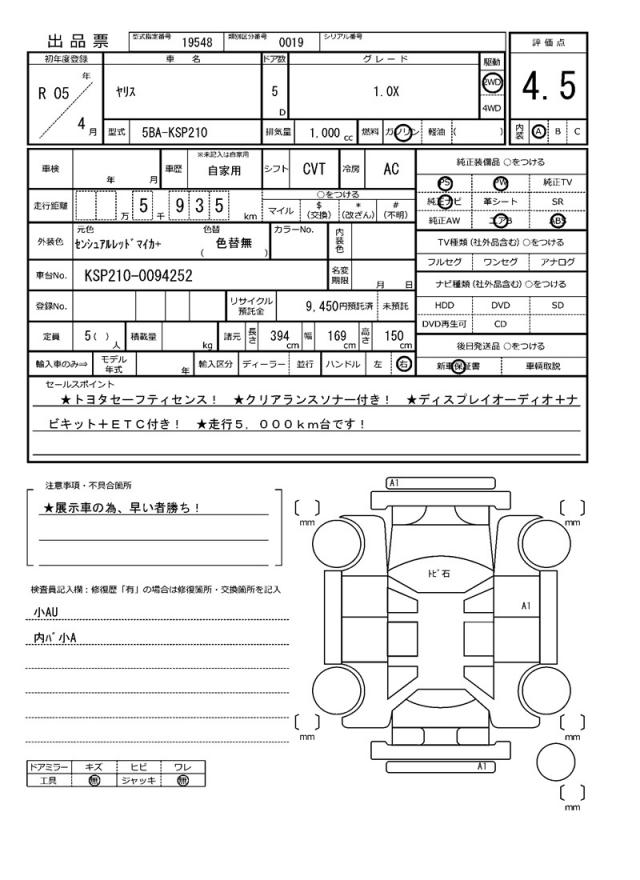 出品票 型式指定番号 19548 類別区分番号 0019 シリアル番号
評価点
4.5
内装 A B C
初年度登録 車名 ドア数 グレード 駆動
R 05 年 4 月 ヤリス 5 D 1.0X 2WD 4WD
型式 5BA-KSP210 排気量 1.000 cc 燃料 ガソリン 軽油 ( )
車検 年 月 車歴 ※未記入は自家用 自家用 シフト CVT 冷房 AC
走行距離 万 5 千 9 3 5 km
○をつける
マイル $ (交換) * (改ざん) # (不明)
外装色 元色 センシュアルレッドマイカ+ 色替 ( 色替無 ) カラーNo. 内装色
車台No. KSP210-0094252 名変期限 月 日
登録No. リサイクル預託金 9,450円預託済 未預託
定員 5( ) 人 積載量 kg 諸元 長さ 394 cm 幅 169 cm 高さ 150 cm
輸入車のみ⇒ モデル年式 年 輸入区分 ディーラー 並行 ハンドル 左 右
純正装備品 ○をつける
PS PW 純正TV
純正ナビ 革シート SR
純正AW エアB ABS
TV種類(社外品含む) ○をつける
フルセグ ワンセグ アナログ
ナビ種類(社外品含む) ○をつける
HDD DVD SD
DVD再生可 CD
後日発送品 ○をつける
新車保証書 車輌取説
セールスポイント
★トヨタセーフティセンス! ★クリアランスソナー付き! ★ディスプレイオーディオ+ナ
ビキット+ETC付き! ★走行5,000km台です!
注意事項・不具合箇所
★展示車の為、早い者勝ち!
検査員記入欄:修復歴「有」の場合は修復箇所・交換箇所を記入
小AU
内バ小A
ドアミラー キズ ヒビ ワレ
工具 無 ジャッキ 無
A1
[ ] mm [ ] mm
トビ石
A1
[ ] mm [ ] mm
A1
[ ] mm